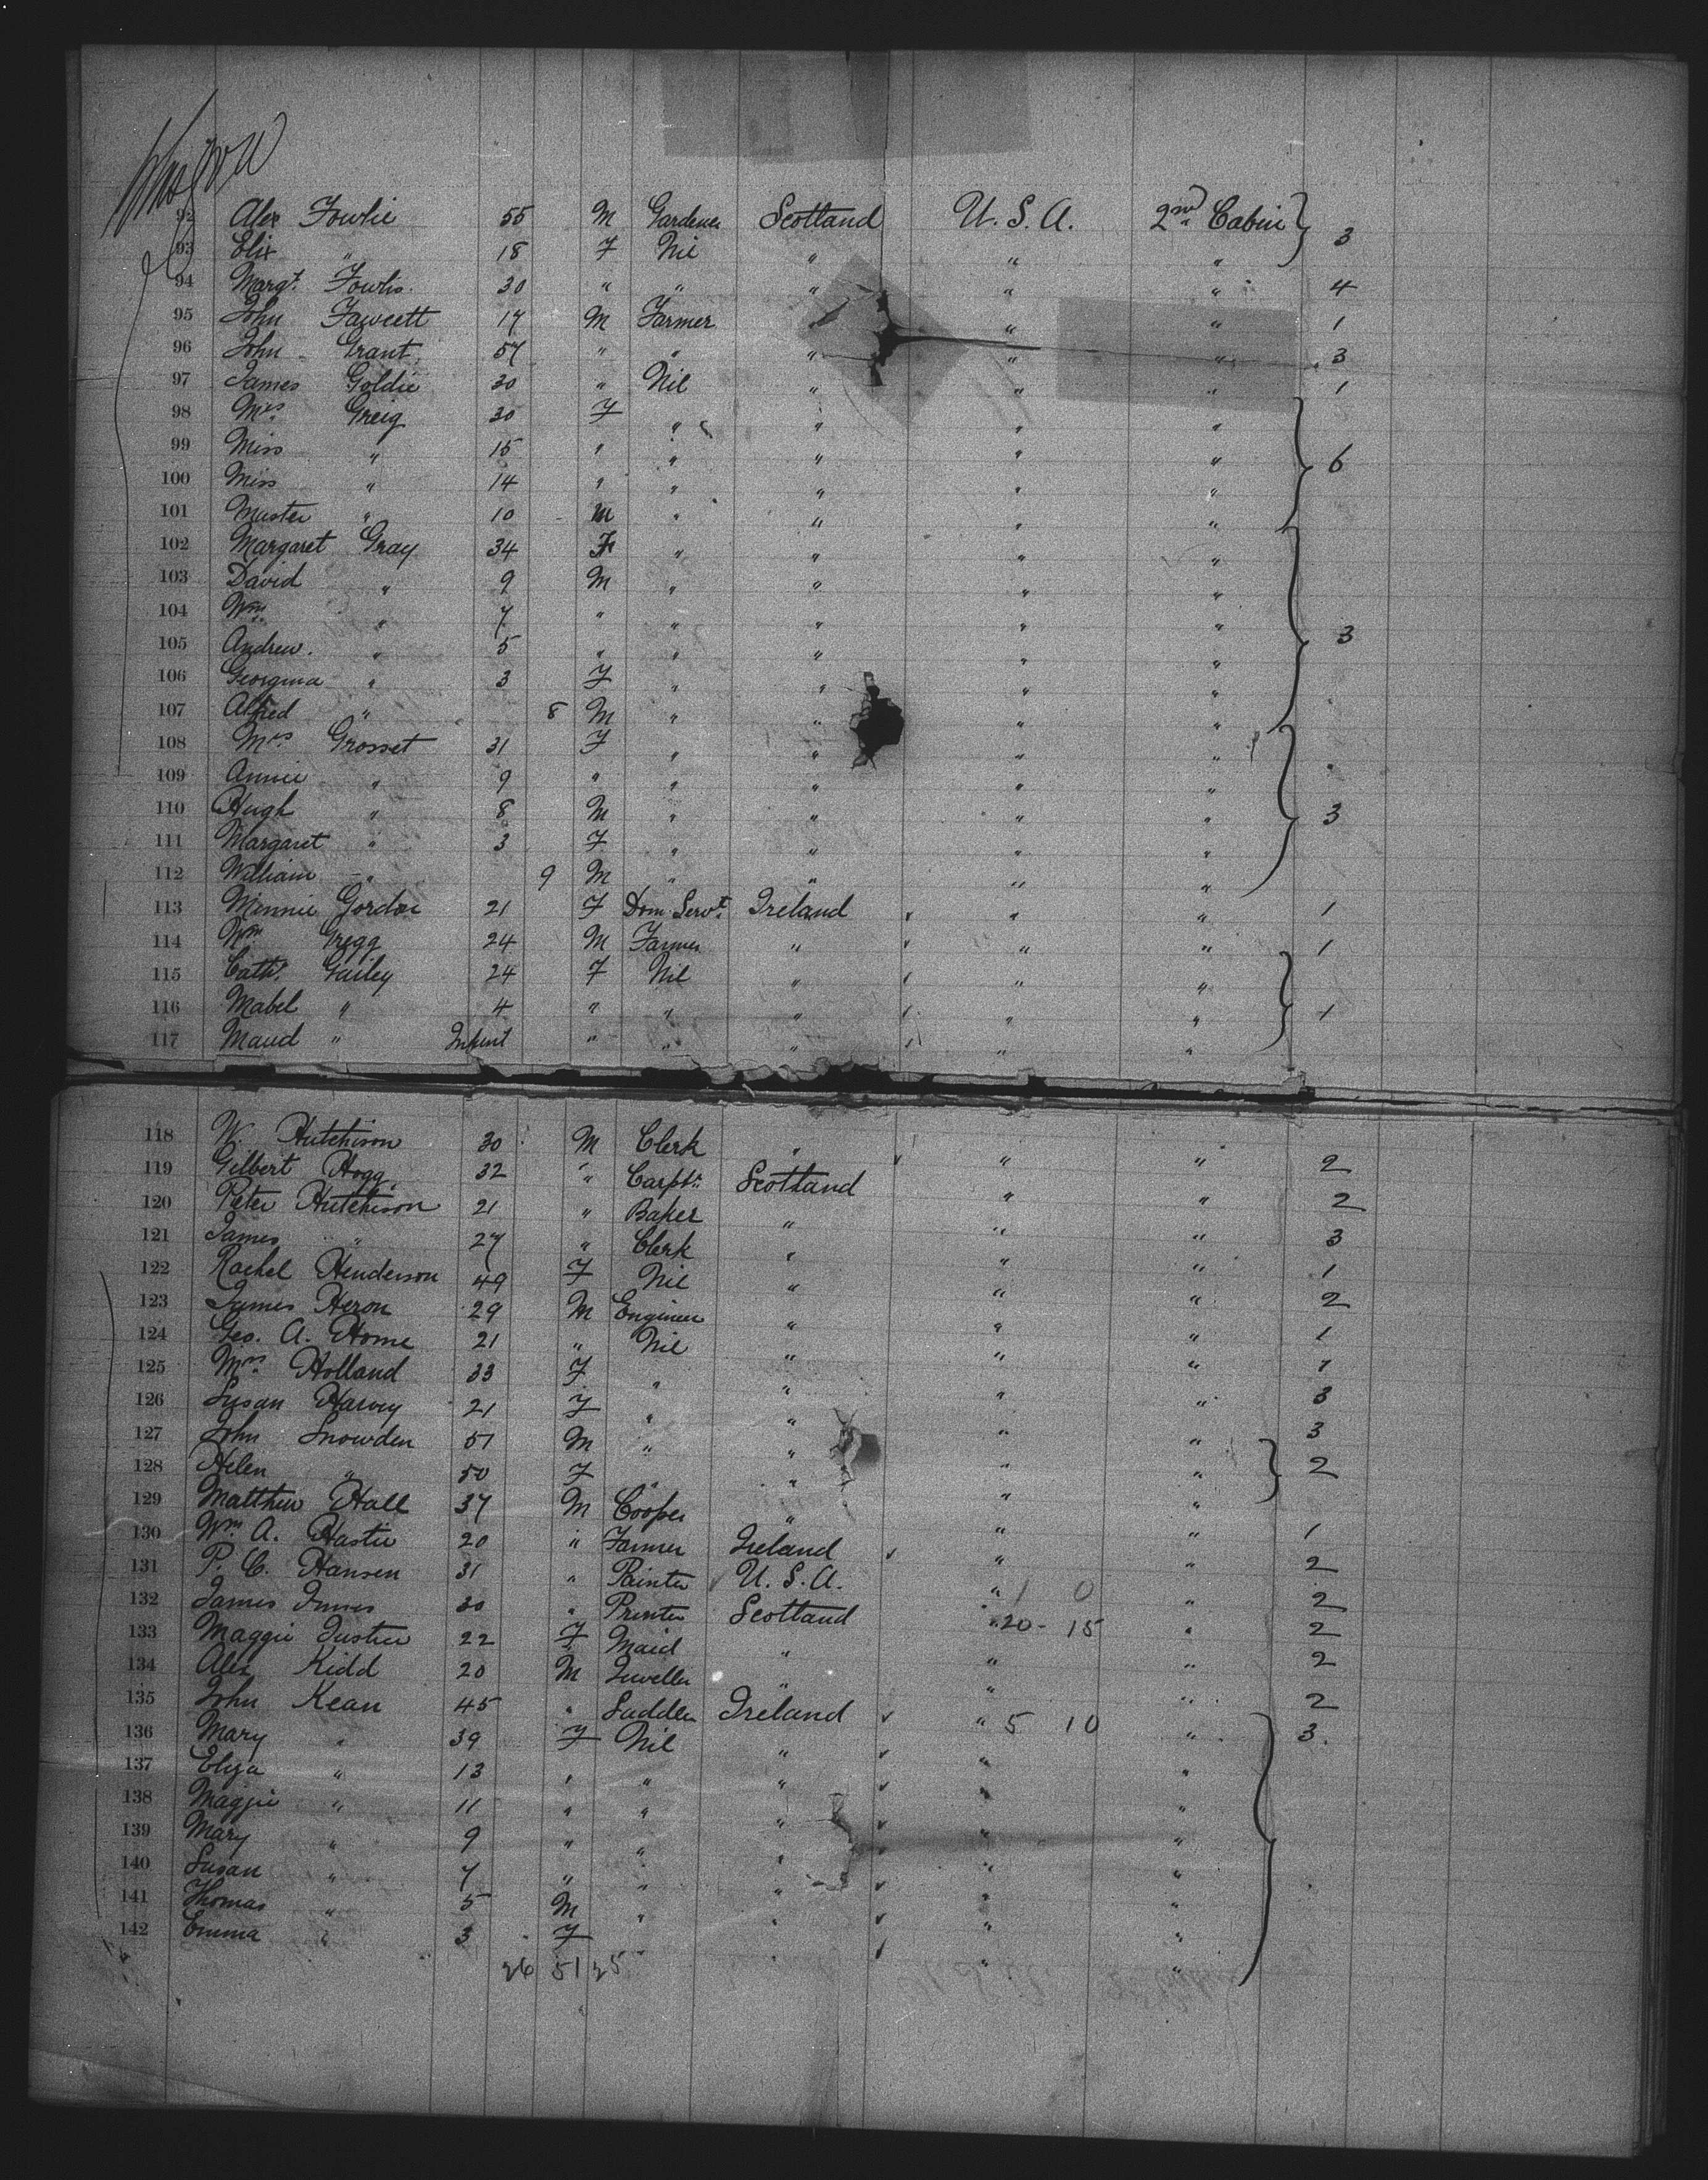 Glasgow
92 Alex Fowlie 55 M Gardener Scotland U.S.A. 2nd Cabin 3
93 Eliz " 18 F Nil " " "
94 Margt. Fowlis. 30 " " " " " 4
95 John Fawcett 17 M Farmer " " " 1
96 John Grant 57 " " " " " 3
97 James Goldie 30 " Nil " " " 1
98 Mrs Greig 30 F " " " "
99 Miss " 15 " " " " " 6
100 Miss " 14 " " " " "
101 Master " 10 M " " " "
102 Margaret Gray 34 F " " " "
103 David " 9 M " " " "
104 Wm. " 7 " " " " "
105 Andrew. " 5 " " " " " 3
106 Georgina " 3 F " " " "
107 Alfred " 8 M " " " "
108 Mrs Grosset 31 F " " " "
109 Annie " 9 " " " " "
110 Hugh " 8 M " " " " 3
111 Margaret " 3 F " " " "
112 William " 9 M " " " "
113 Minnie Gordon 21 F Dom. Servt. Ireland " " 1
114 Wm Gregg 24 M Farmer " " " 1
115 Cath. Gailey 24 F Nil " " "
116 Mabel " 4 " " " " " 1
117 Maud " Infant " " " " "
118 W. Hutchison 30 M Clerk " " " 2
119 Gilbert Hogg. 32 " Carptr. Scotland " " 2
120 Peter Hutchison 21 " Baker " " " 3
121 James " 27 " Clerk " " " 1
122 Rachel Henderson 49 F Nil " " " 2
123 James Heron 29 M Engineer " " " 1
124 Geo. A. Home 21 " Nil " " " 1
125 Mrs Holland 33 F " " " " 3
126 Susan Harvey 21 F " " " " 3
127 John Snowden 51 M " " " " 2
128 Helen " 50 F " " " "
129 Matthew Hall 37 M Cooper " " " 1
130 Wm. A. Hastie 20 " Farmer Ireland " " 2
131 P. C. Hansen 31 " Painter U.S.A. " 1 0 " 2
132 James Innes 30 " Printer Scotland " 20 - 15 " 2
133 Maggie Justice 22 F Maid " " " 2
134 Alex Kidd 20 M Jeweller " " " 2
135 John Kean 45 " Saddler Ireland " 5 10 " 3.
136 Mary " 39 F Nil " " "
137 Eliza " 13 " " " " "
138 Maggie " 11 " " " " "
139 Mary " 9 " " " " "
140 Susan " 7 " " " " "
141 Thomas " 5 M " " " "
142 Emma " 3 F " " "
26 51 25